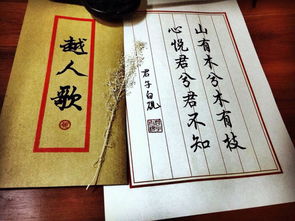 越人歌
山有木兮木有枝
心悦君兮君不知